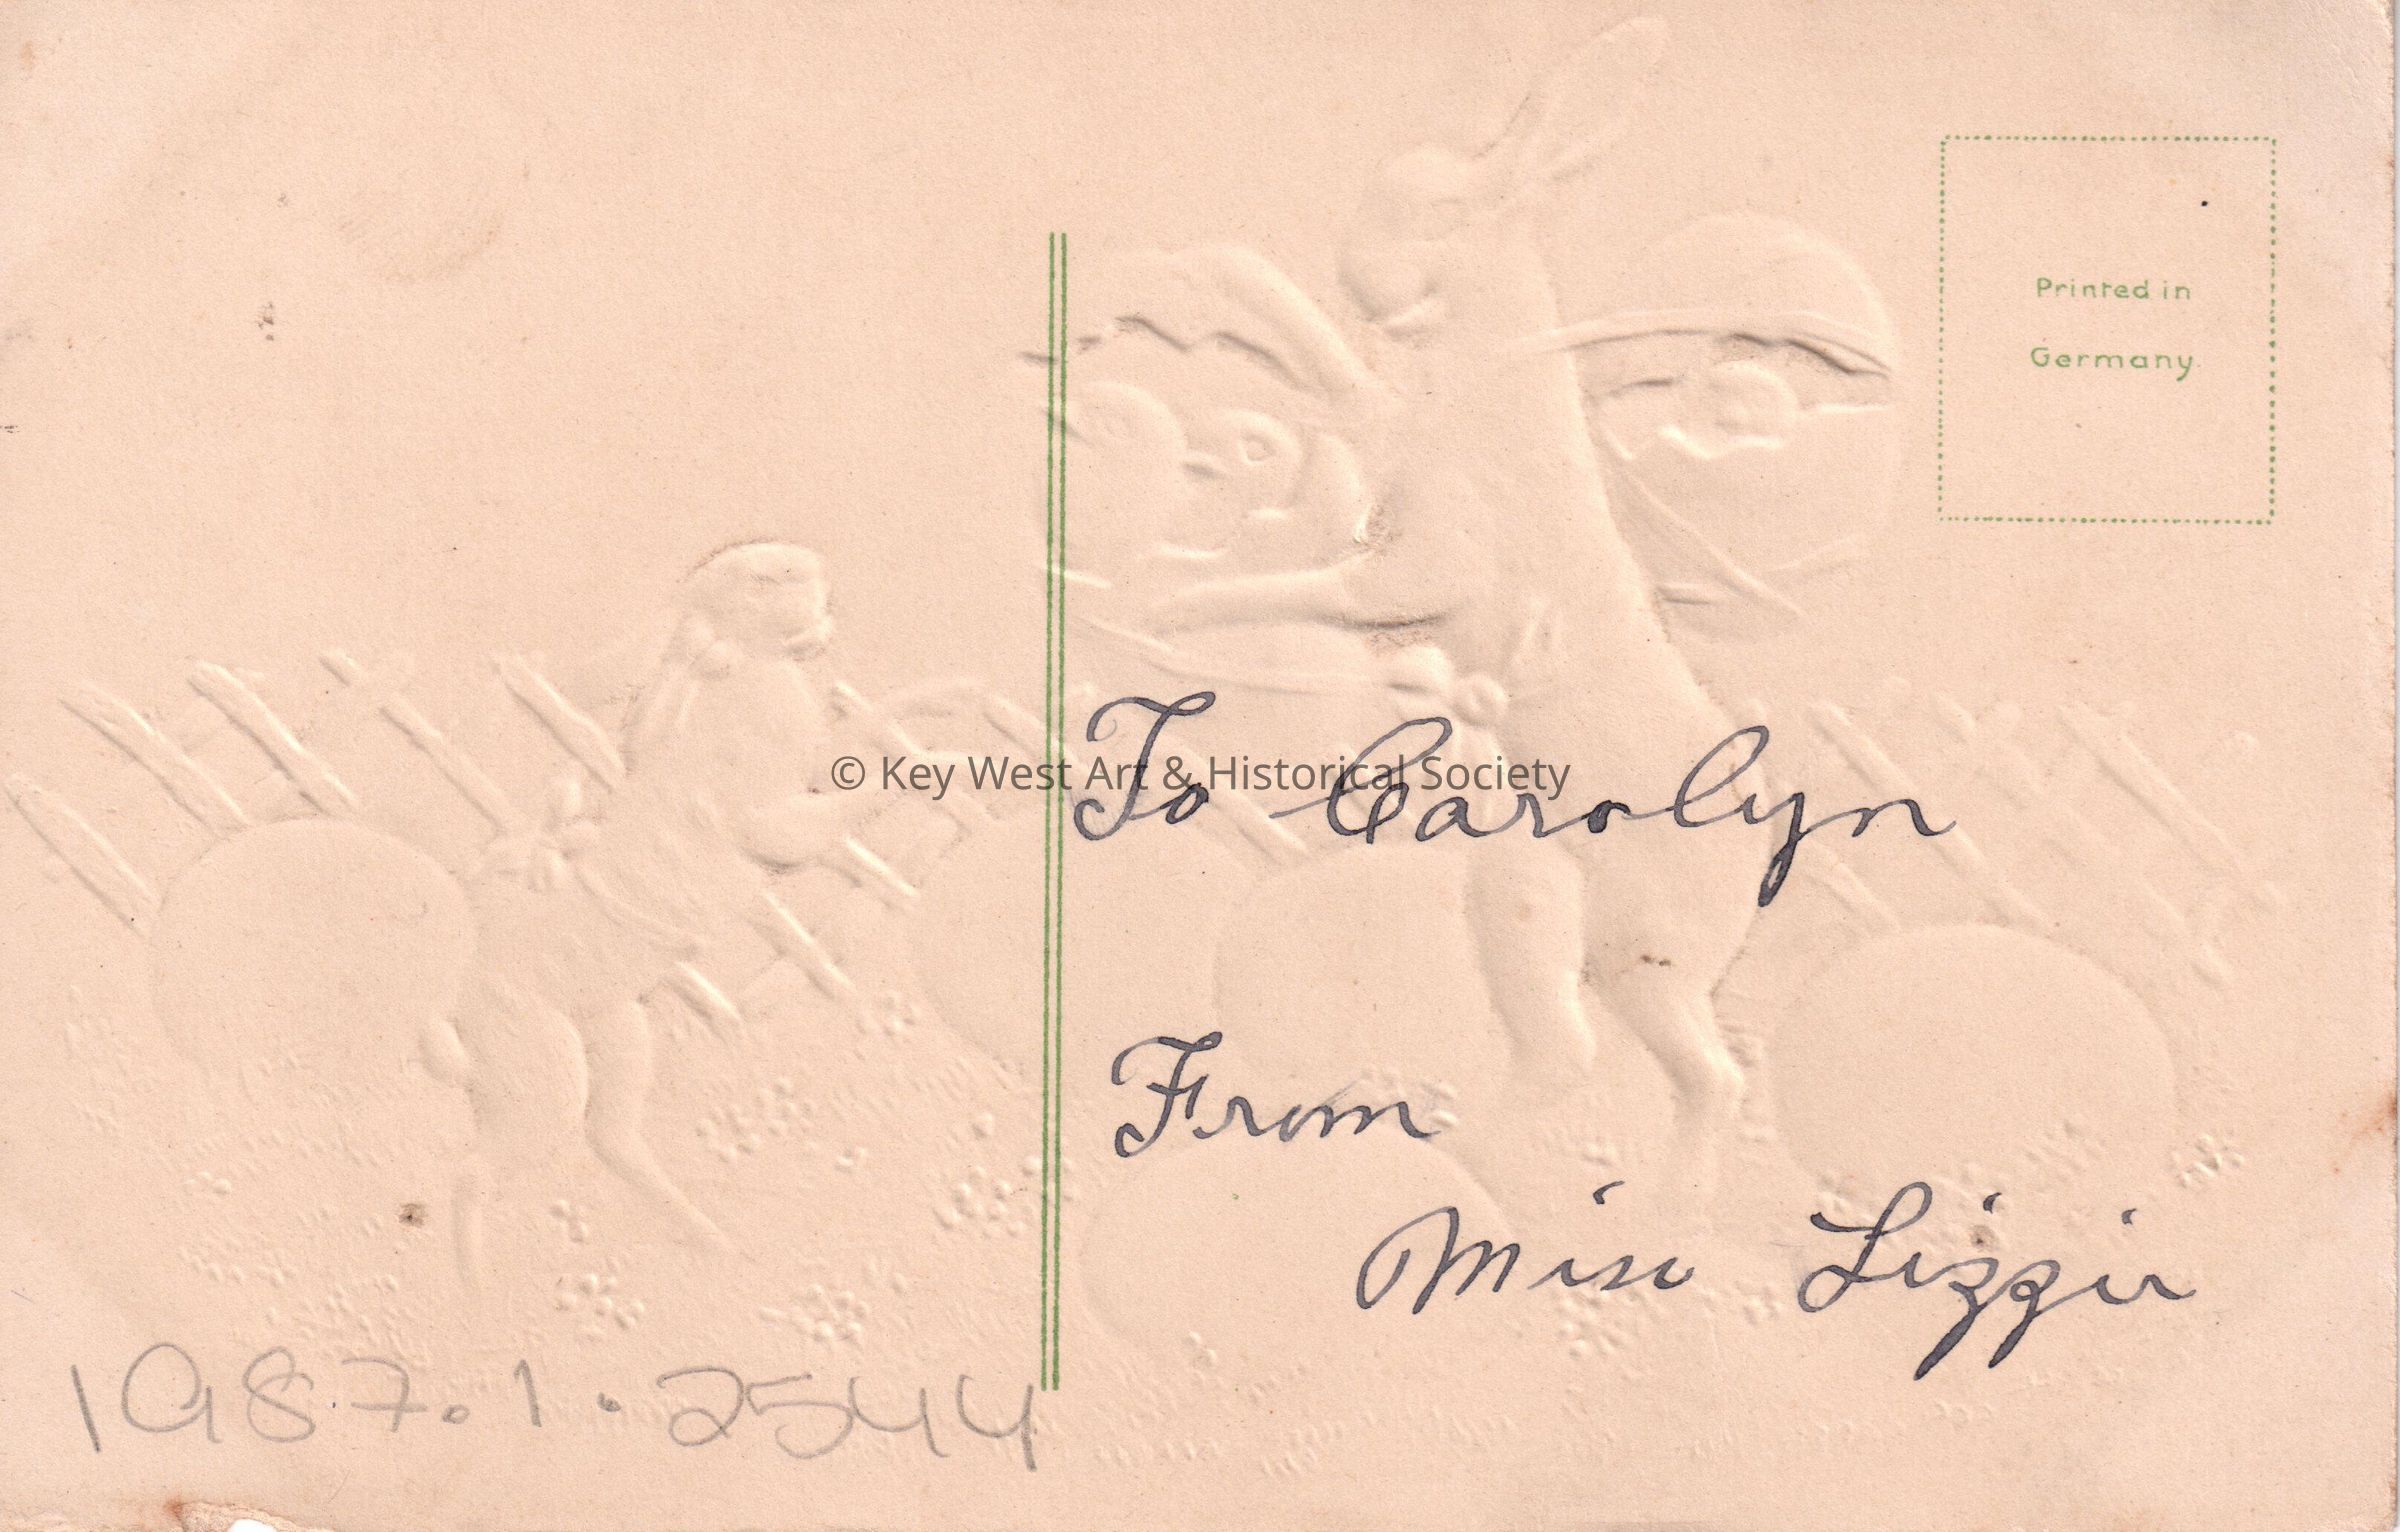 Printed in
Germany.
© Key West Art & Historical Society
To Carolyn
From
Miss Lizzie
1987.1.2544